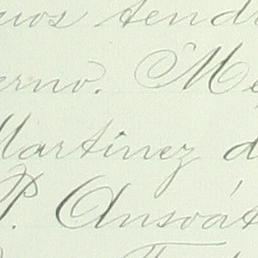 uos tendr
erno. Me
Martínez d
P. Ansoát